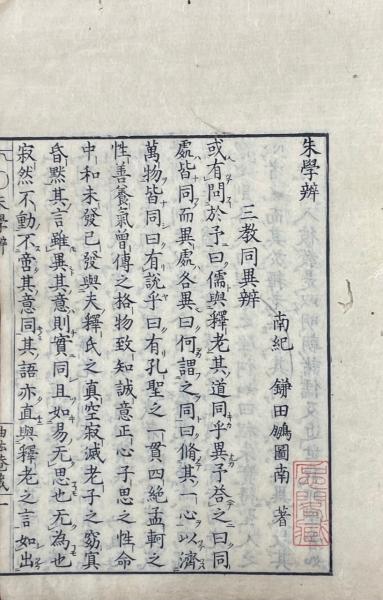 朱學辨
南紀 鎌田鵬圖南 著
三教同異辨
或有問於予曰儒與釋老其道同乎異乎予荅之曰同
處皆同而異處各異曰何謂之同曰脩其一心以濟
萬物皆同曰有說乎曰有孔聖之一貫四絶孟軻之
性善養氣曾傳之格物致知誠意正心子思之性命
中和未發已發與夫釋氏之真空寂滅老子之窈冥
昏默其言雖異其意則實同且如易无思也无為也
寂然不動不啻其意同其語亦直與釋老之言如出
朱學辨